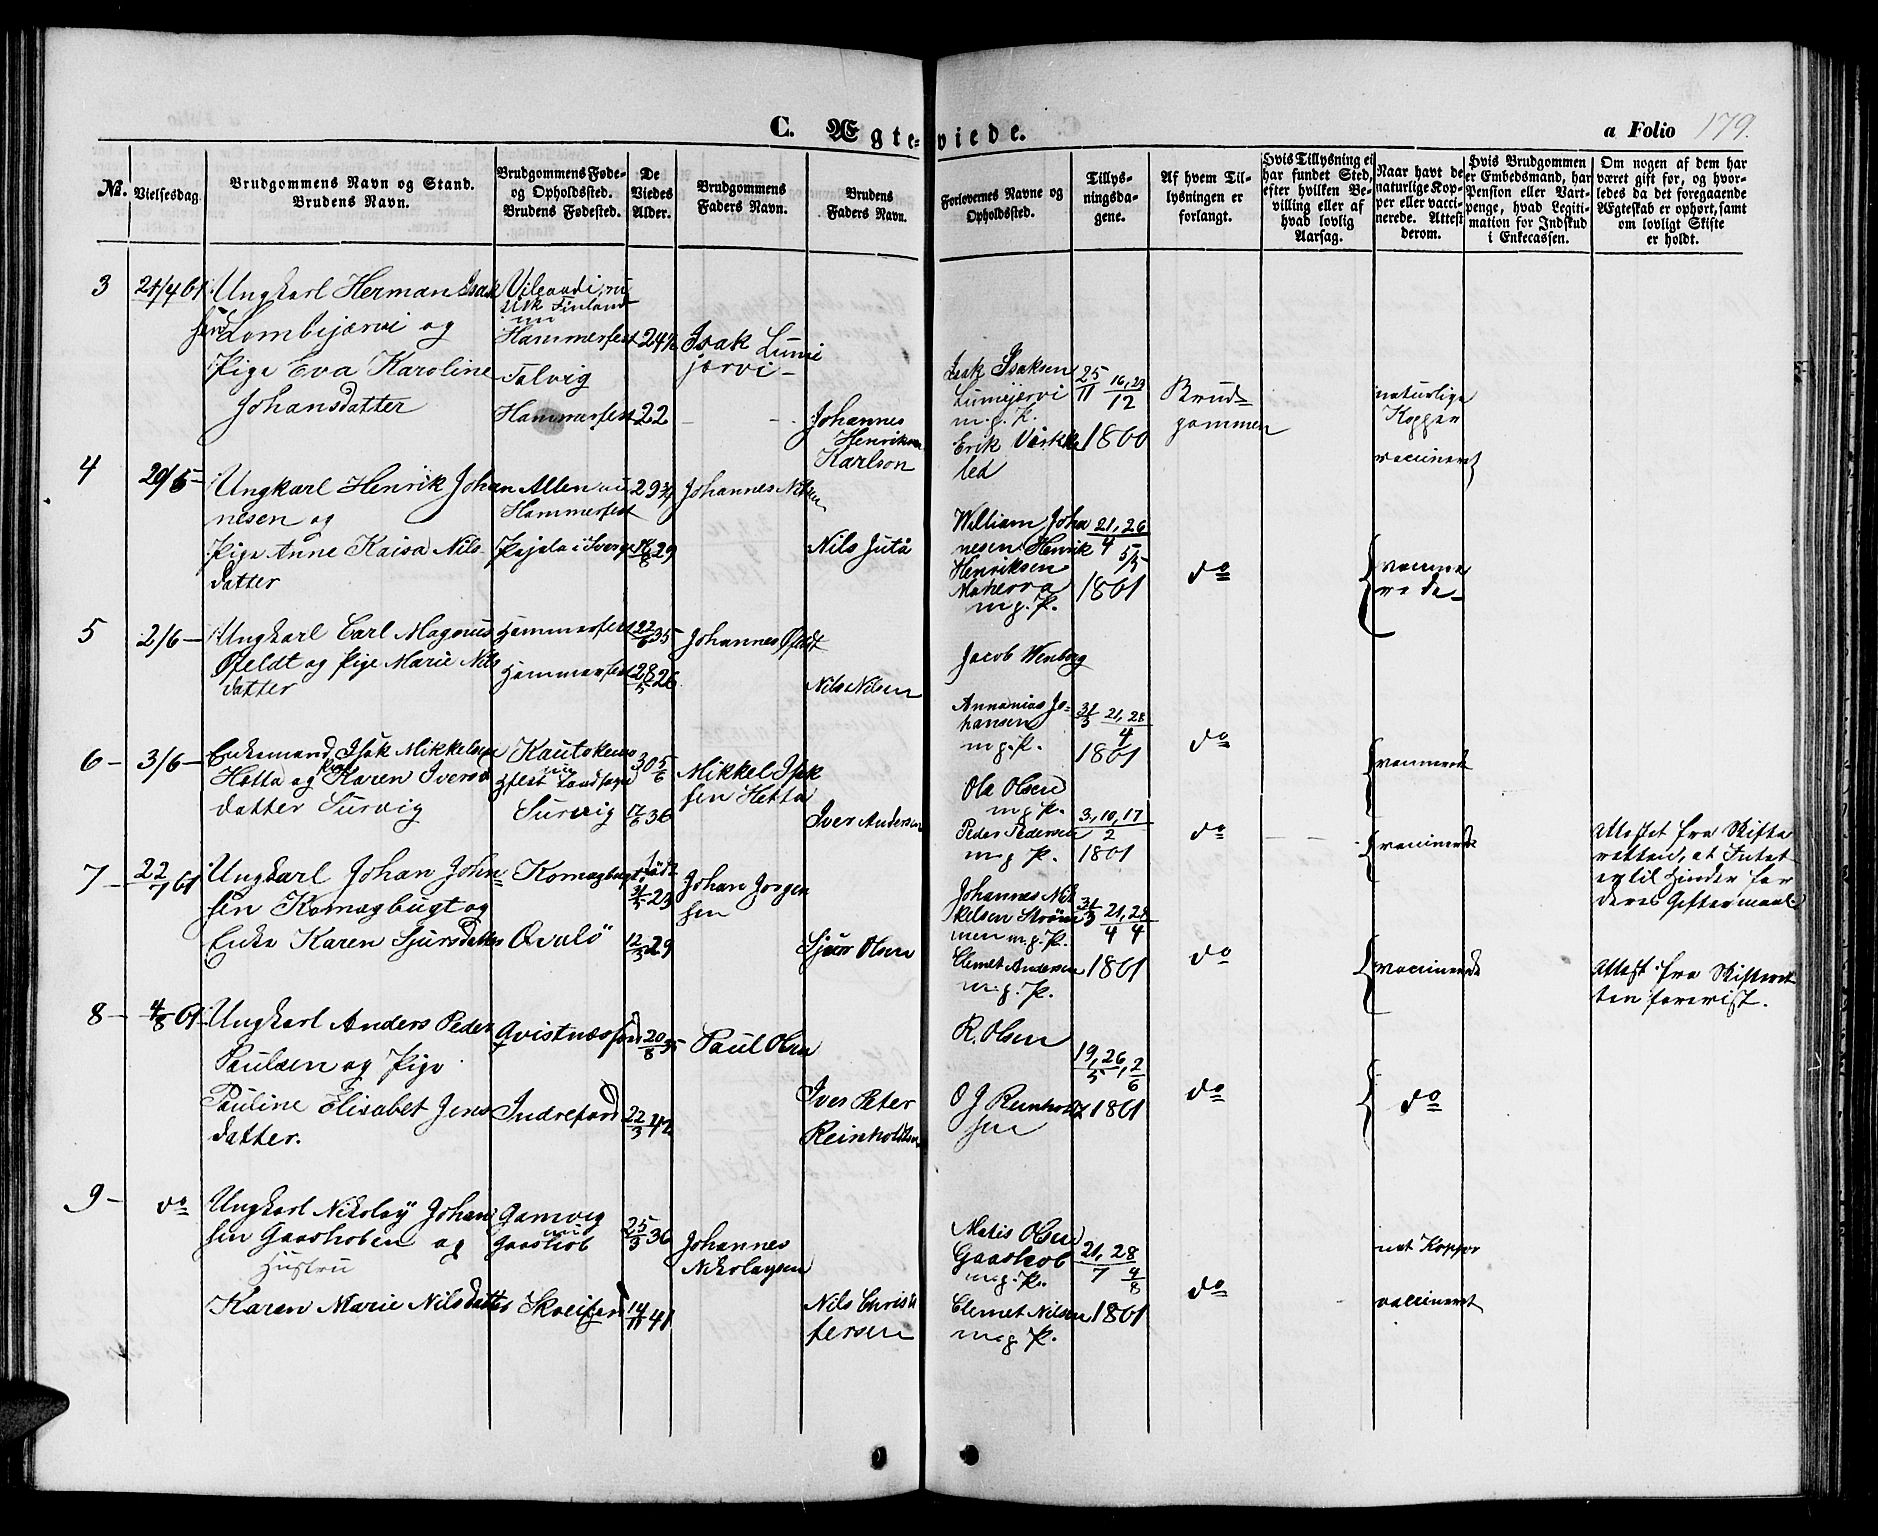 C. Ægte-viede.
a Folio 179.
No. Vielsesdag.
Brudgommens Navn og Stand.
Brudens Navn.
Brudgommens Føde-
og Opholdssted.
Brudens Fødested.
De
Viedes
Alder.
Brudgommens
Faders Navn.
Brudens
Faders Navn.
Forlovernes Navne og
Opholdssted.
Tillys-
ningsda-
gene.
Af hvem Til-
lysningen er
forlangt.
Hvis Tillysning ei
har fundet Sted,
efter hvilken Be-
villing eller af
hvad lovlig
Aarsag.
Naar havt de
naturlige Kop-
per eller vacci-
nerede. Attest
derom.
Hvis Brudgommen
er Embedsmand, har
Pension eller Vart-
penge, hvad Legiti-
mation for Indskud
i Enkecassen.
Om nogen af dem har
været gift før, og hvor-
ledes da det foregaaende
Ægteskab er ophørt, samt
om lovligt Skifte
er holdt.
3
21/4 61
Ungkarl Herman Isak
sen Lombijærvi og
Pige Eva Karoline
Johansdatter
Finland
Hammerfest
Talvig
Hammerfest
24½
22
Isak Lumi
jærvi
Johannes
Henriksen
Karlson
Isak Isaksen
Lumijærvi
m. g. P.
Erik
25/11 16, 23/12
1860
Brud-
gommen
naturlige
Kopper
vaccineret
4
29/5
Ungkarl Henrik Johan
nesen og
Pige Anne Kaisa Nils-
datter
Alten nu
Hammerfest
Pajala i Sverge
29¾
16/8 29
Johannes Nilsen
Nils Jutå
William Joha
nesen, Henrik
Henriksen
m. g. P.
21, 26/4 5/5
1861
do
vaccine
rede
5
2/6
Ungkarl Carl Magnus
Øfeldt og Pige Marie Nils
datter
Hammerfest
Hammerfest
22/6 35
28/5 26
Johannes Øfeldt
Nils Nilsen
Jacob Wenberg
Annanias Jo-
hansen
m. g. P.
31/3 21, 28/4
1861
do
vaccinerede
6
3/6
Enkemand Isak Mikkelsen
Hætta og Pige Karen Ivers
datter Survig
Kautokeino
nu
Hfest Landsogn
Survig
30 5/6
17/6 36
Mikkel Isak
sen Hætta
Iver Andersen
Ole Olsen
m. g. P.
Peder Pedersen
m. g. P.
3, 10, 17/2
1861
do
vaccinerede
Attest fra Skifte
retten, at Intet
er til Hinder for
deres Giftermaal
7
22/7 61
Ungkarl Johan John-
sen Komagbugt og
Enke Karen Sjursdatter
Komagbugt
Qvalö
31/5 23
12/3 29
Johan Jørgen
sen
Sjur Olsen
Johannes Mik
kelsen Strøm
men m. g. P.
Clemet Andersen
m. g. P.
31/3 21, 28/4 4
1861
do
vaccinerede
Attest fra Skifteret
ten forevist.
8
4/8 61
Ungkarl Anders Peder
Paulsen og Pige
Pauline Elisabet Jens
datter.
Qvistnæsfjord
Indrefjord
20/8 35
22/3 42
Paul Olsen
Iver Peter
Reinholdtsen
R. Olsen
O J Reinholdt
sen
19, 26/5, 2/6
1861
do
do
9
do
Ungkarl Nikolay Johan
sen Gaashoben og
Hustru
Karen Marie Nilsdatter
Gamvig
nu
Gaashob
Skreifjord
25/3 36
14/11 41
Johannes
Nikolaysen
Nils Christ
fersen
Matis Olsen
Gaashob
m. g. P.
Clemet Nilsen
m. g. P.
21, 28/7 4/8
1861
do
nat Kopper
vaccineret